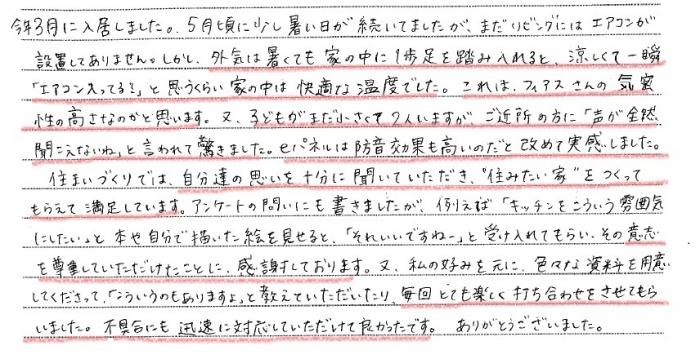 今年3月に入居しました。5月頃に少し暑い日が続いてましたが、まだリビングにはエアコンが
設置してありません。しかし、外気は暑くても家の中に1歩足を踏み入れると、涼しくて一瞬
「エアコン入ってる?」と思うくらい家の中は快適な温度でした。これは、フィアスさんの気密
性の高さなのかと思います。又、子どもがまだ小さくて2人いますが、ご近所の方に「声が全然
聞こえないね」と言われて驚きました。eパネルは防音効果も高いのだと改めて実感しました。
住まいづくりでは、自分達の思いを十分に聞いていただき、"住みたい家"をつくって
もらえて満足しています。アンケートの問いにも書きましたが、例えば「キッチンをこういう雰囲気
にしたい」と本や自分で描いた絵を見せると、「それいいですねー」と受け入れてもらい、その意志
を尊重していただけたことに、感謝しております。又、私の好みを元に、色々な資料を用意
してくださって、「こういうのもありますよ」と教えていただいたり、毎回とても楽しく打ち合わせをさせてもら
いました。不具合にも迅速に対応していただけて良かったです。 ありがとうございました。